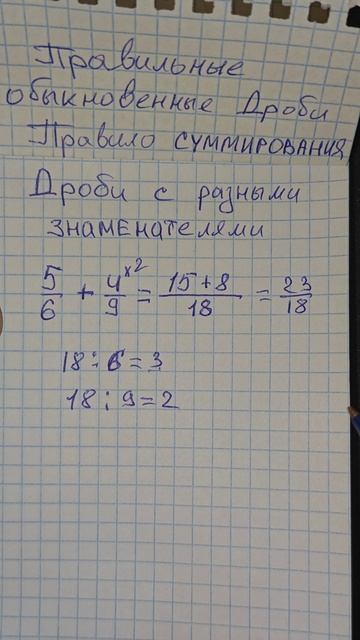 Правильные
обыкновенные Дроби
Правило суммирования
Дроби с разными
знаменателями
5/6 + 4/9 ˣ² = 15+8/18 = 23/18
18:6=3
18:9=2